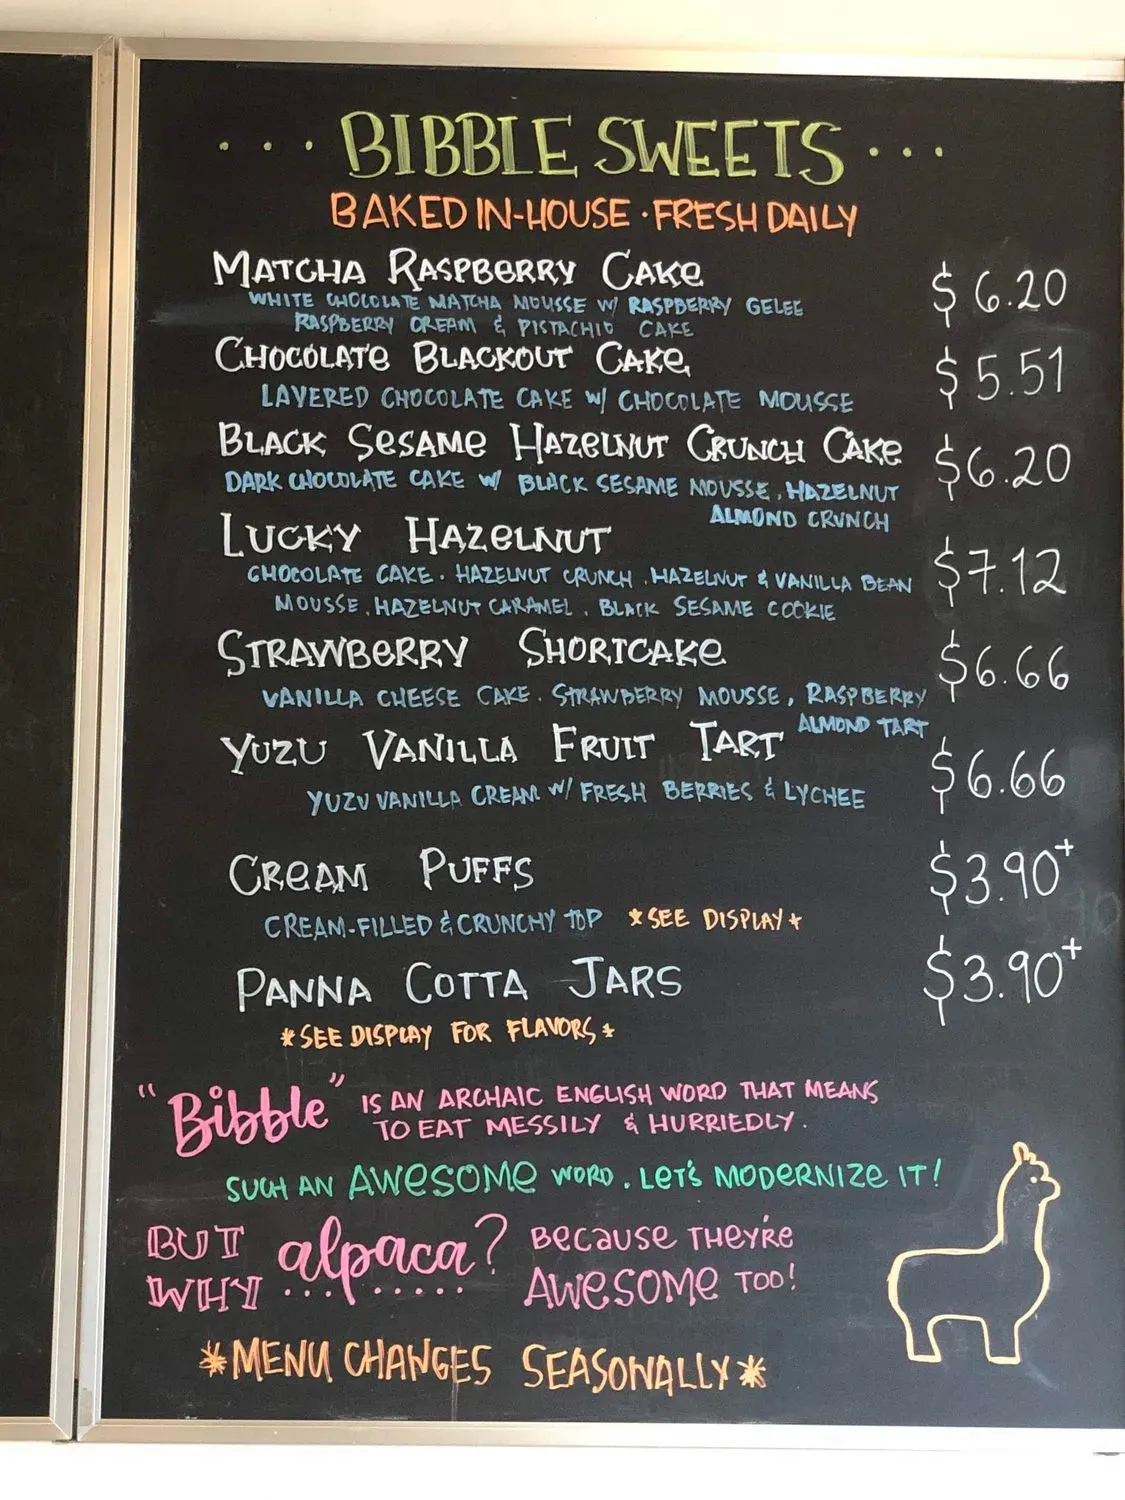 ···BIBBLE SWEETS···
BAKED IN-HOUSE · FRESH DAILY
MATCHA RASPBERRY CAKE $6.20
WHITE CHOCOLATE MATCHA MOUSSE W/ RASPBERRY GELEE
RASPBERRY CREAM & PISTACHIO CAKE
CHOCOLATE BLACKOUT CAKE $5.51
LAYERED CHOCOLATE CAKE W/ CHOCOLATE MOUSSE
BLACK SESAME HAZELNUT CRUNCH CAKE $6.20
DARK CHOCOLATE CAKE W/ BLACK SESAME MOUSSE, HAZELNUT
ALMOND CRUNCH
LUCKY HAZELNUT $7.12
CHOCOLATE CAKE. HAZELNUT CRUNCH, HAZELNUT & VANILLA BEAN
MOUSSE, HAZELNUT CARAMEL, BLACK SESAME COOKIE
STRAWBERRY SHORTCAKE $6.66
VANILLA CHEESE CAKE. STRAWBERRY MOUSSE, RASPBERRY
ALMOND TART
YUZU VANILLA FRUIT TART $6.66
YUZU VANILLA CREAM W/ FRESH BERRIES & LYCHEE
CREAM PUFFS $3.90+
CREAM-FILLED & CRUNCHY TOP *SEE DISPLAY*
PANNA COTTA JARS $3.90+
*SEE DISPLAY FOR FLAVORS*
"Bibble" IS AN ARCHAIC ENGLISH WORD THAT MEANS
TO EAT MESSILY & HURRIEDLY.
SUCH AN AWESOME WORD. LET'S MODERNIZE IT!
BUT WHY alpaca? BECAUSE THEY'RE
AWESOME TOO!
*MENU CHANGES SEASONALLY*